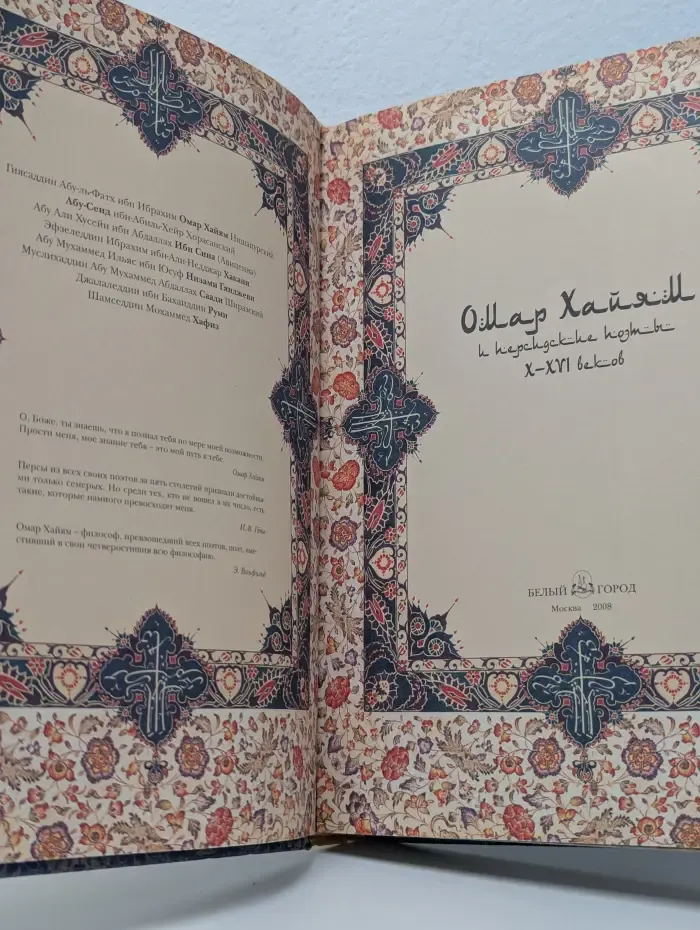 Гиясаддин Абу-ль-Фатх ибн Ибрахим Омар Хайям Нишапурский
Абу-Сеид ибн-Абиль-Хейр Хорасанский
Абу Али Хусейн ибн Абдаллах Ибн Сина (Авиценна)
Эфзеледдин Ибрахим ибн-Али-Неджар Хакани
Абу Мухаммед Ильяс ибн Юсуф Низами Гянджеви
Муслихаддин Абу Мухаммед Абдаллах Саади Ширазский
Джалаледдин ибн Бахаиддин Руми
Шамседдин Мохаммед Хафиз
О, Боже, ты знаешь, что я познал тебя по мере моей возможности.
Прости меня, мое знание тебя – это мой путь к тебе.
Омар Хайям
Персы из всех своих поэтов за пять столетий признали достойны-
ми только семерых. Но среди тех, кто не вошел в их число, есть
такие, которые намного превосходят меня.
И.В. Гёте
Омар Хайям – философ, превзошедший всех поэтов, поэт, вме-
стивший в свои четверостишия всю философию.
Э. Винфильд
Омар Хайям
и персидские поэты
X–XVI веков
БЕЛЫЙ ГОРОД
Москва 2008